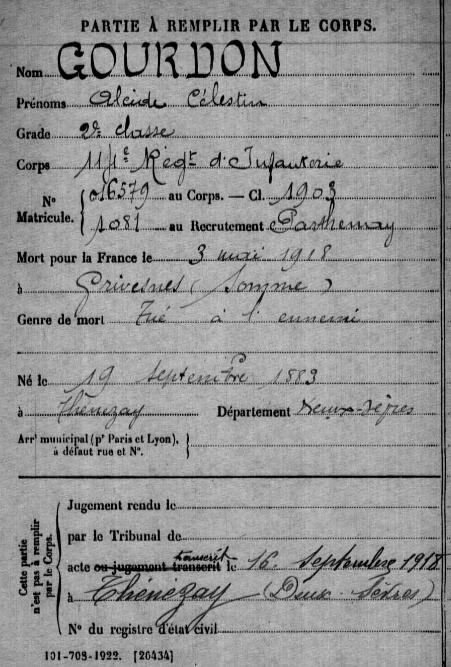 PARTIE À REMPLIR PAR LE CORPS.
Nom GOURDON
Prénoms Alcide Célestin
Grade 2e classe
Corps 114e Régt d'Infanterie
N° Matricule. { 016579 au Corps. — Cl. 1903
1081 au Recrutement Parthenay
Mort pour la France le 3 mai 1918
à Grivesnes (Somme)
Genre de mort Tué à l'ennemi
Né le 19 septembre 1883
à Thénezay Département Deux-Sèvres
Arrt municipal (pr Paris et Lyon), à défaut rue et N°. }
Cette partie n'est pas à remplir par le Corps.
Jugement rendu le
par le Tribunal de
acte ou jugement transcrit transcrit le 16 septembre 1918
à Thénezay (Deux-Sèvres)
N° du registre d'état civil
101-708-1922. [26434]